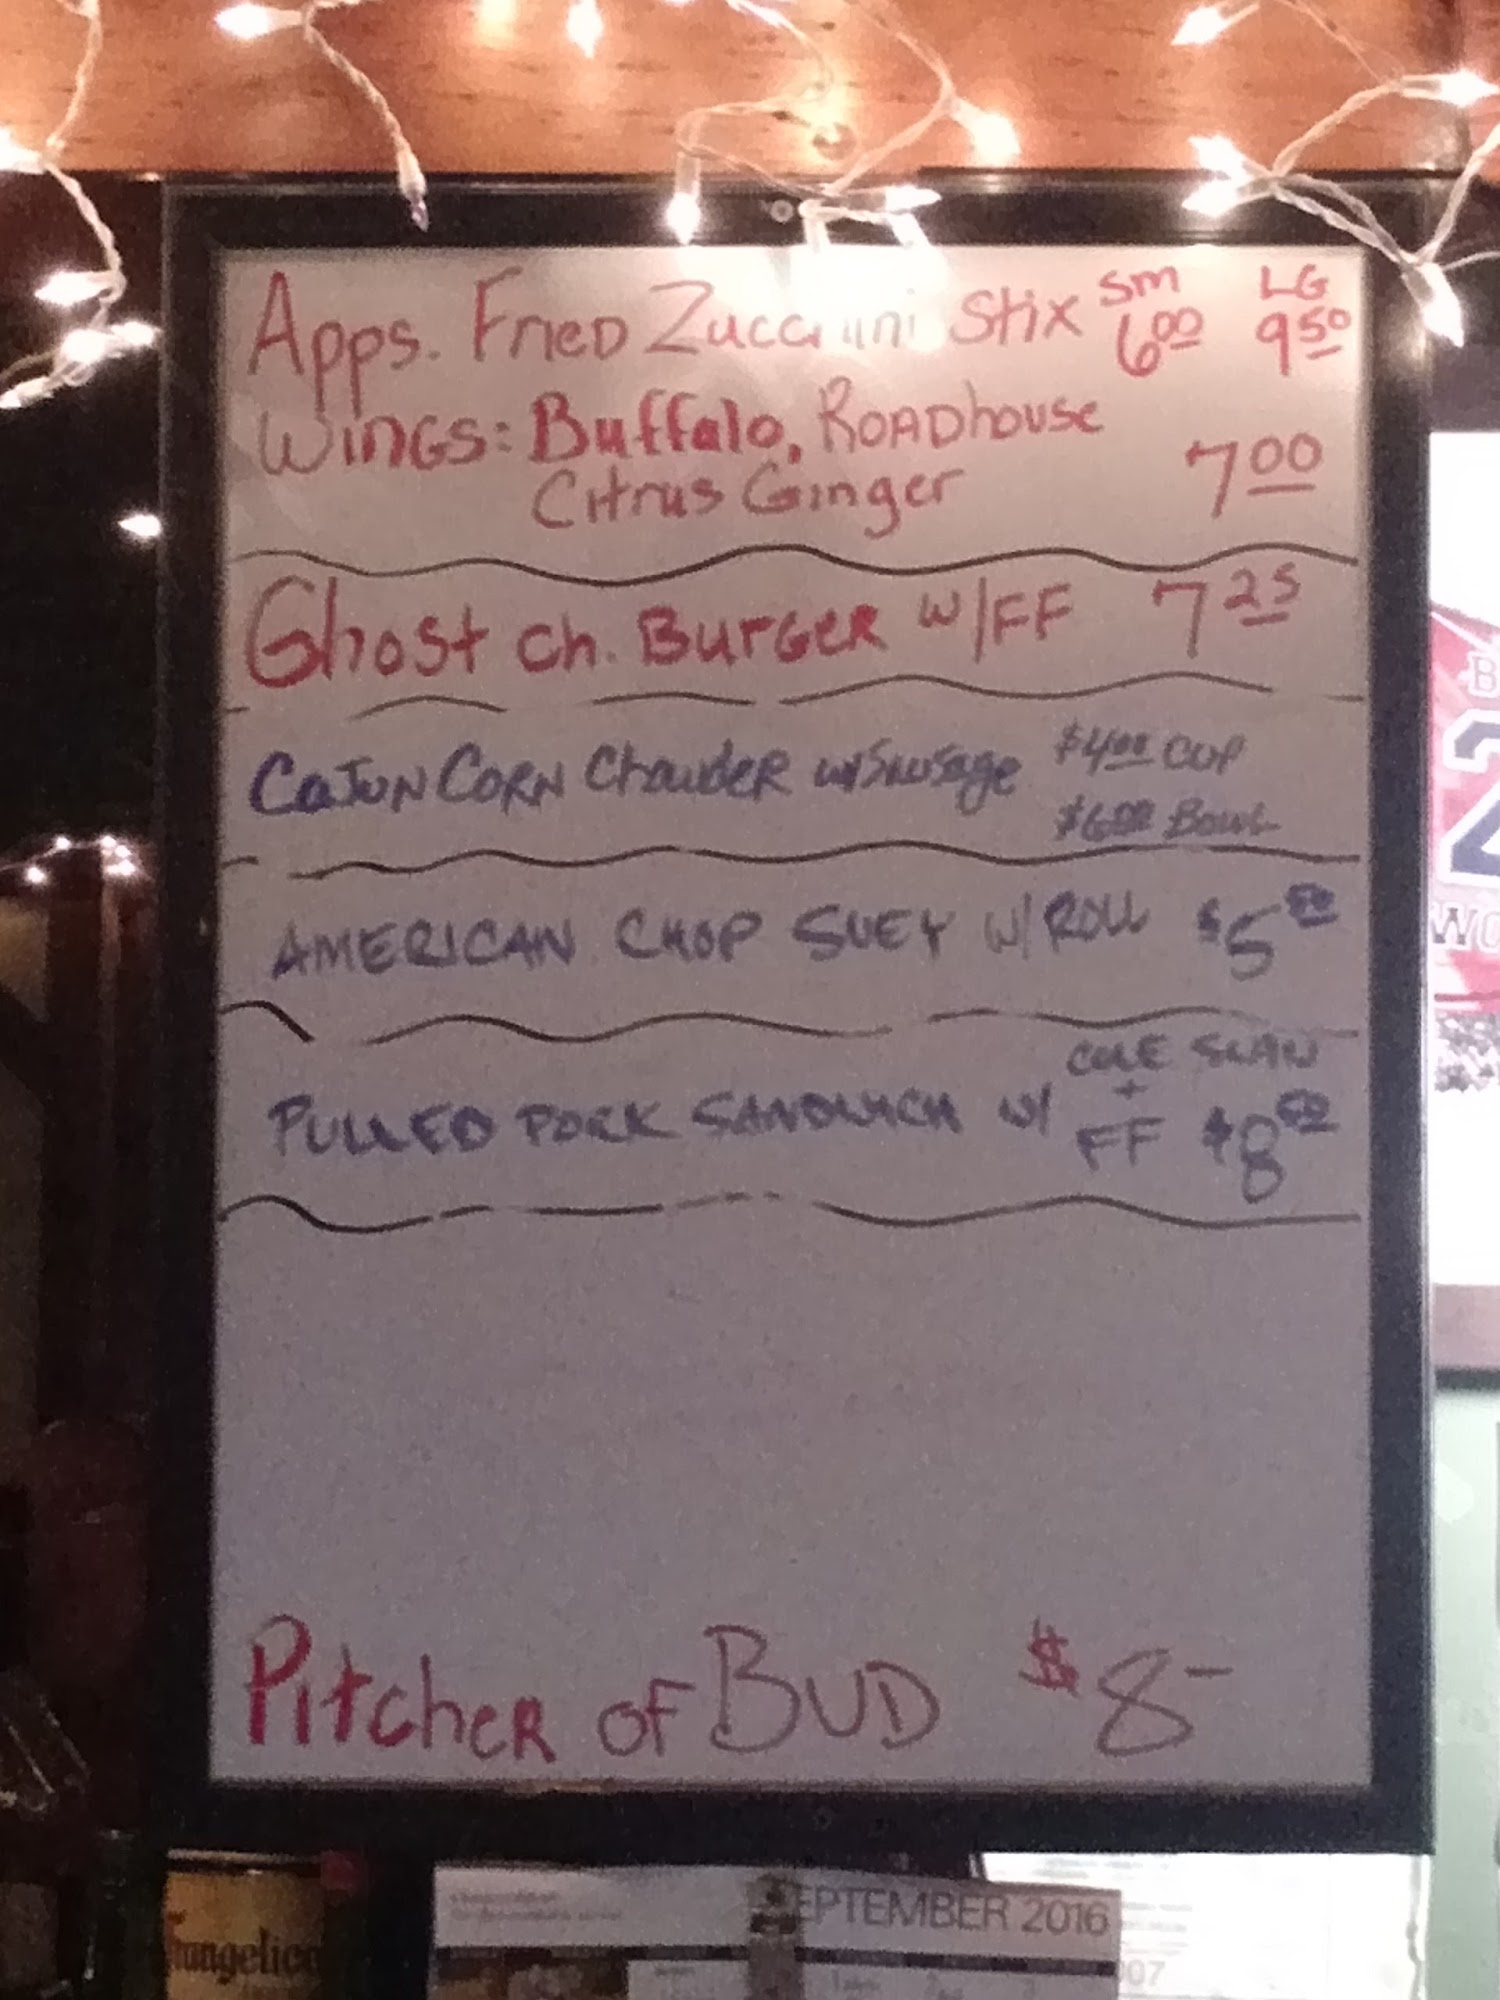 Apps. Fried Zucchini Stix Sm 6.00 LG 9.50
Wings: Buffalo, Roadhouse
Citrus Ginger 7.00
Ghost Ch. Burger w/FF 7.25
Cajun Corn Chowder w/Sausage $4.00 Cup
$6.00 Bowl
AMERICAN CHOP SUEY W/ ROLL $5.50
COLE SLAW
PULLED PORK SANDWICH W/ + FF $8.50
Pitcher of BUD $8-
EPTEMBER 2016
007